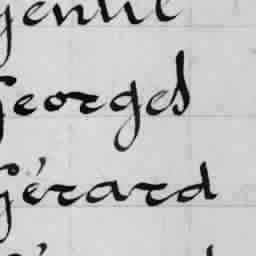 Gentil
Georges
Gérard